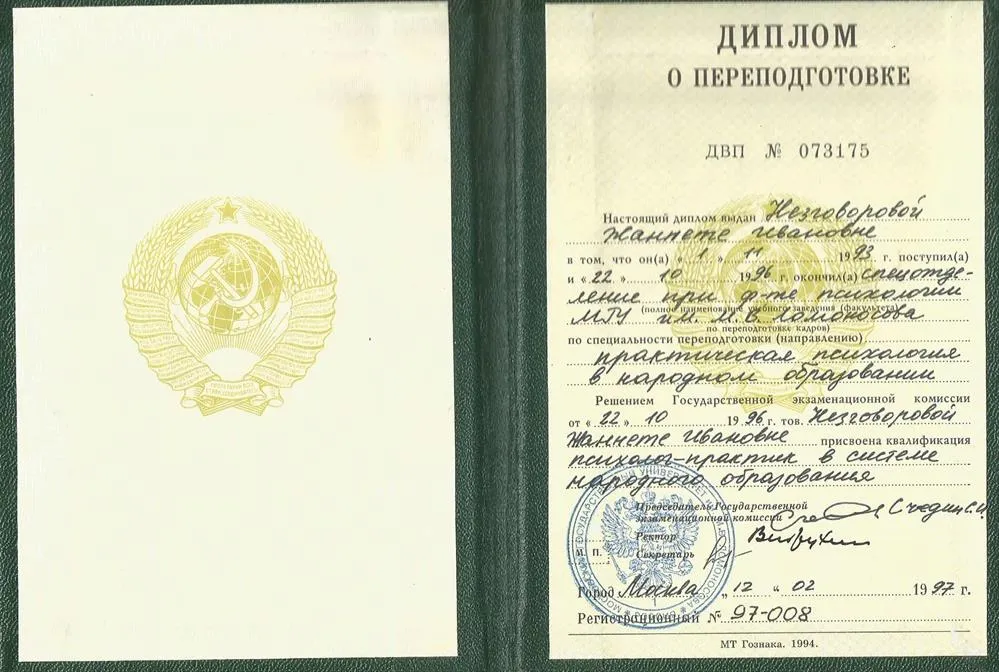 ДИПЛОМ
О ПЕРЕПОДГОТОВКЕ
ДВП № 073175
Настоящий диплом выдан Незговоровой
Жаннете Ивановне
в том, что он(а) « 1 » 11 1993 г. поступил(а)
и « 22 » 10 1996 г. окончил(а) спецотде-
ление при ф-те психологии
(полное наименование учебного заведения (факультета)
МГУ им. М.В. Ломоносова
по переподготовке кадров)
по специальности переподготовки (направлению)
практическая психология
в народном образовании
Решением Государственной экзаменационной комиссии
от « 22 » 10 1996 г. тов. Незговоровой
Жаннете Ивановне присвоена квалификация
психолог-практик в системе
народного образования
Председатель Государственной
экзаменационной комиссии
Ректор
М. П. Секретарь
Город Москва „ 12 “ 02 1997 г.
Регистрационный № 97-008
МТ Гознака. 1994.